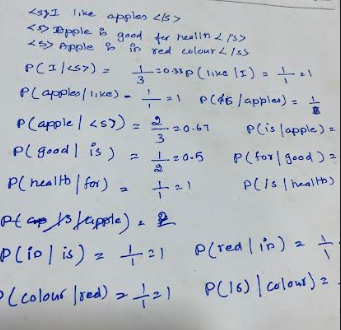 <s> I like apples </s>
<s> Apple is good for health </s>
<s> Apple is in red colour </s>
P(I|<s>) = 1/3 = 0.33 P(like|I) = 1/1 = 1
P(apples|like) = 1/1 = 1 P(</s>|apples) = 1/1
P(apple|<s>) = 2/3 = 0.67 P(is|apple) =
P(good|is) = 1/2 = 0.5 P(for|good) =
P(health|for) = 1/1 = 1 P(/s|health)
P(in|is) = 1/1 = 1 P(red|in) = 1/1
P(colour|red) = 1/1 = 1 P(/s)|colour) =